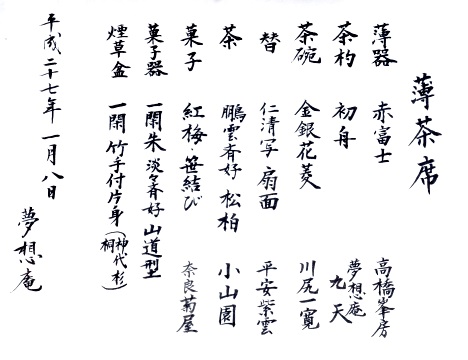 薄茶席
薄器 赤富士 高橋峯房
茶杓 初舟 夢想庵 九天
茶碗 金銀花菱 川尻一寛
替 仁清写 扇面 平安紫雲
茶 鵬雲斉好 松柏 小山園
菓子 紅梅・笹結び 奈良菊屋
菓子器 一閑朱 淡々斉好 山道型
煙草盆 一閑 竹手付片身(神代杉 桐)
平成二十七年一月八日 夢想庵